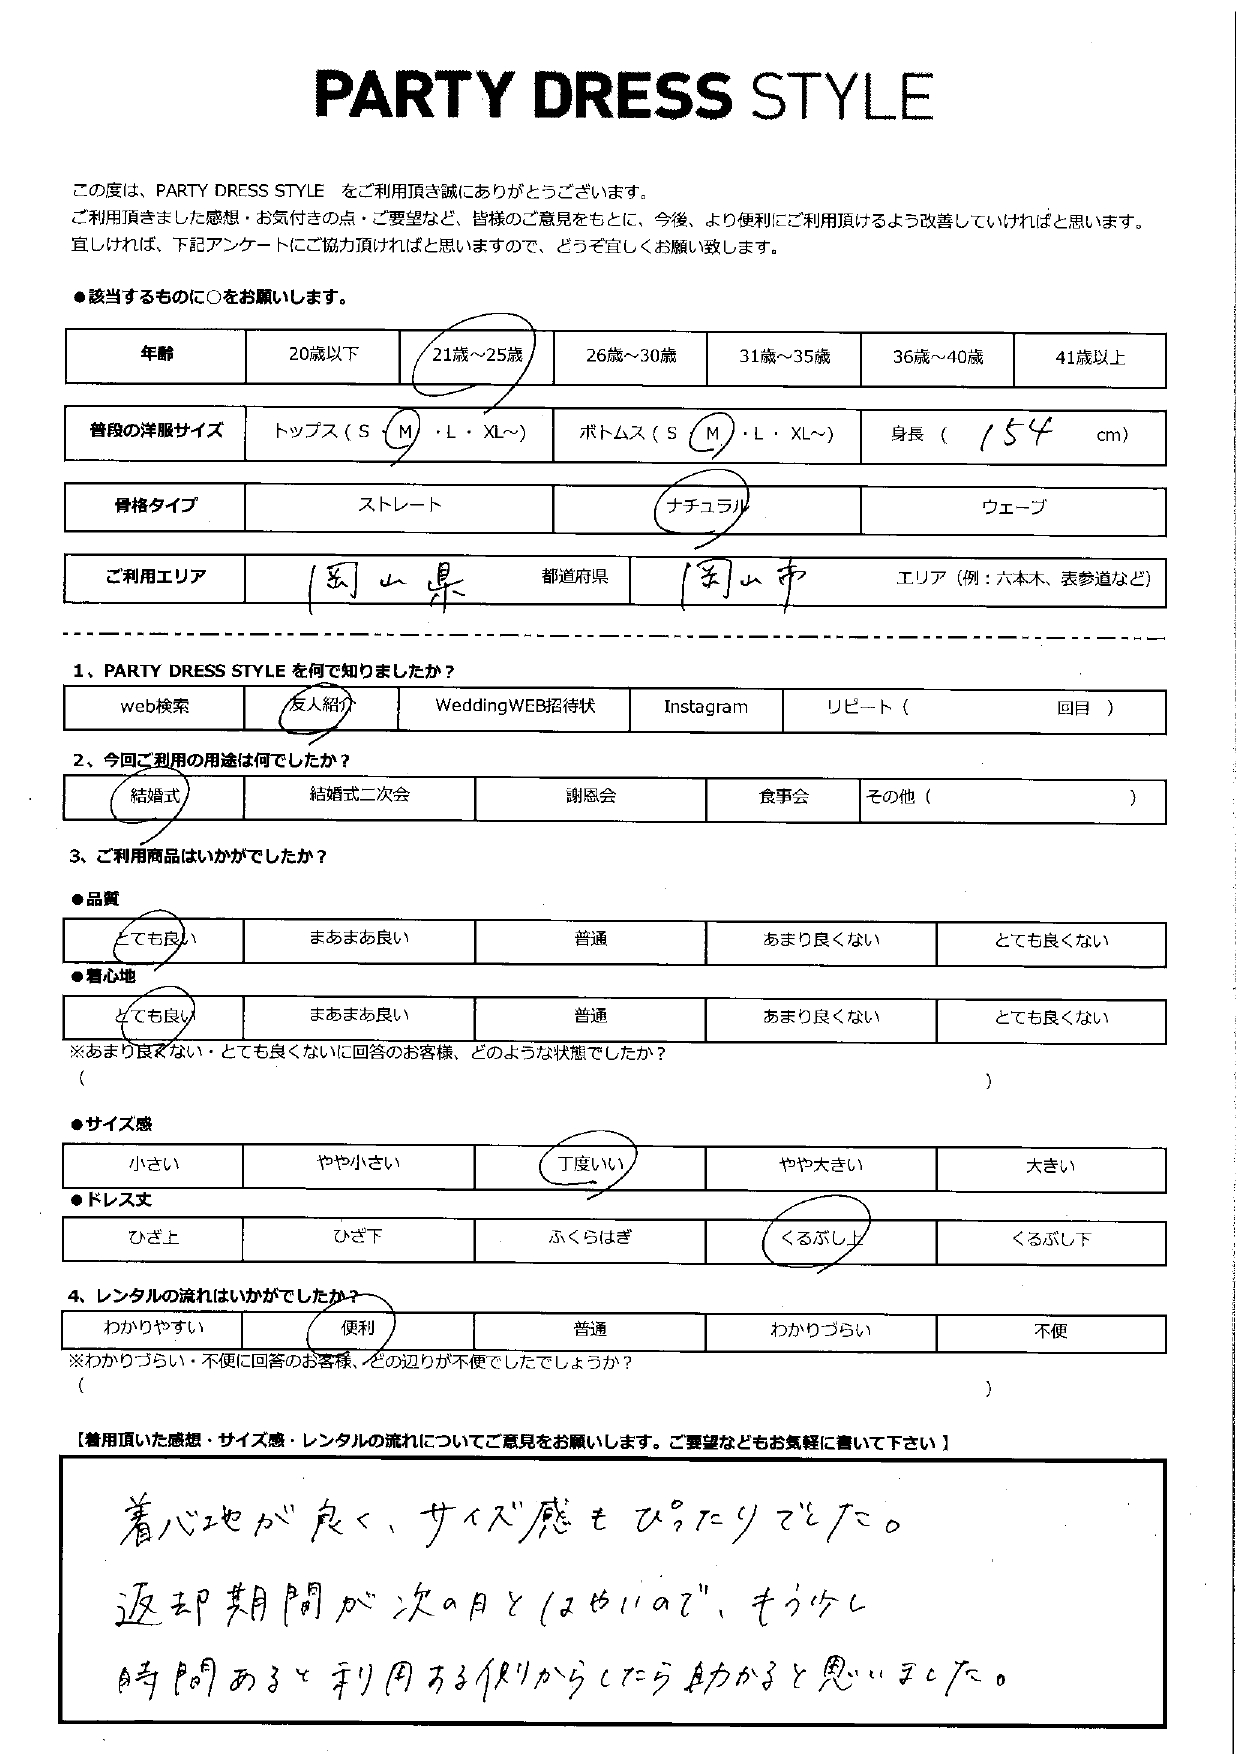 PARTY DRESS STYLE
この度は、PARTY DRESS STYLE をご利用頂き誠にありがとうございます。
ご利用頂きました感想・お気付きの点・ご要望など、皆様のご意見をもとに、今後、より便利にご利用頂けるよう改善していければと思います。
宜しければ、下記アンケートにご協力頂ければと思いますので、どうぞ宜しくお願い致します。
●該当するものに○をお願いします。
年齢 20歳以下 21歳～25歳 26歳～30歳 31歳～35歳 36歳～40歳 41歳以上
普段の洋服サイズ トップス ( S ・ M ・L ・ XL～) ボトムス ( S ・ M ・L ・ XL～) 身長 ( 154 cm)
骨格タイプ ストレート ナチュラル ウェーブ
ご利用エリア 岡山県 都道府県 岡山市 エリア（例：六本木、表参道など）
1、PARTY DRESS STYLE を何で知りましたか？
web検索 友人紹介 WeddingWEB招待状 Instagram リピート（ 回目 ）
2、今回ご利用の用途は何でしたか？
結婚式 結婚式二次会 謝恩会 食事会 その他（ ）
3、ご利用商品はいかがでしたか？
●品質
とても良い まあまあ良い 普通 あまり良くない とても良くない
●着心地
とても良い まあまあ良い 普通 あまり良くない とても良くない
※あまり良くない・とても良くないに回答のお客様、どのような状態でしたか？
（ ）
●サイズ感
小さい やや小さい 丁度いい やや大きい 大きい
●ドレス丈
ひざ上 ひざ下 ふくらはぎ くるぶし上 くるぶし下
4、レンタルの流れはいかがでしたか？
わかりやすい 便利 普通 わかりづらい 不便
※わかりづらい・不便に回答のお客様、どの辺りが不便でしたでしょうか？
（ ）
【着用頂いた感想・サイズ感・レンタルの流れについてご意見をお願いします。ご要望などもお気軽に書いて下さい 】
着心地が良く、サイズ感もぴったりでした。
返却期間が次の日とはやいので、もう少し
時間あると利用する側からしたら助かると思いました。